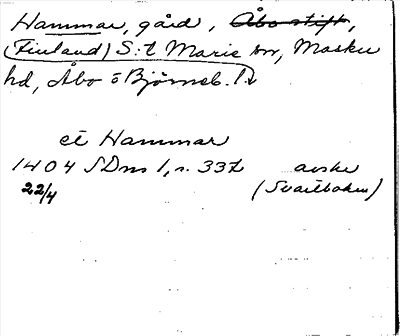 Hammar, gård, Åbo stift,
(Finland) S:t Marie sn, Masku
hd, Åbo o Björneb. l.
et Hammar
1404 SDns 1, s. 337 avskr
22/4 (Svartboken)